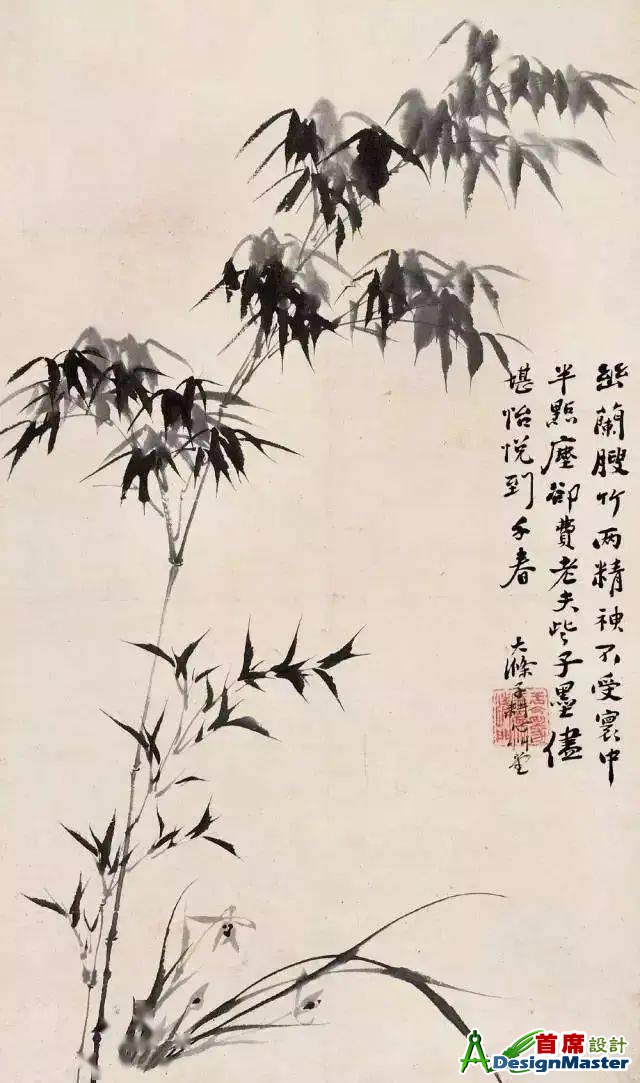 幽蘭瘦竹两精神不受寰中
半點塵卻費老夫些子墨儘
堪怡悅到千春
大滌子耕心艸堂
首席設計
ADesignMaster